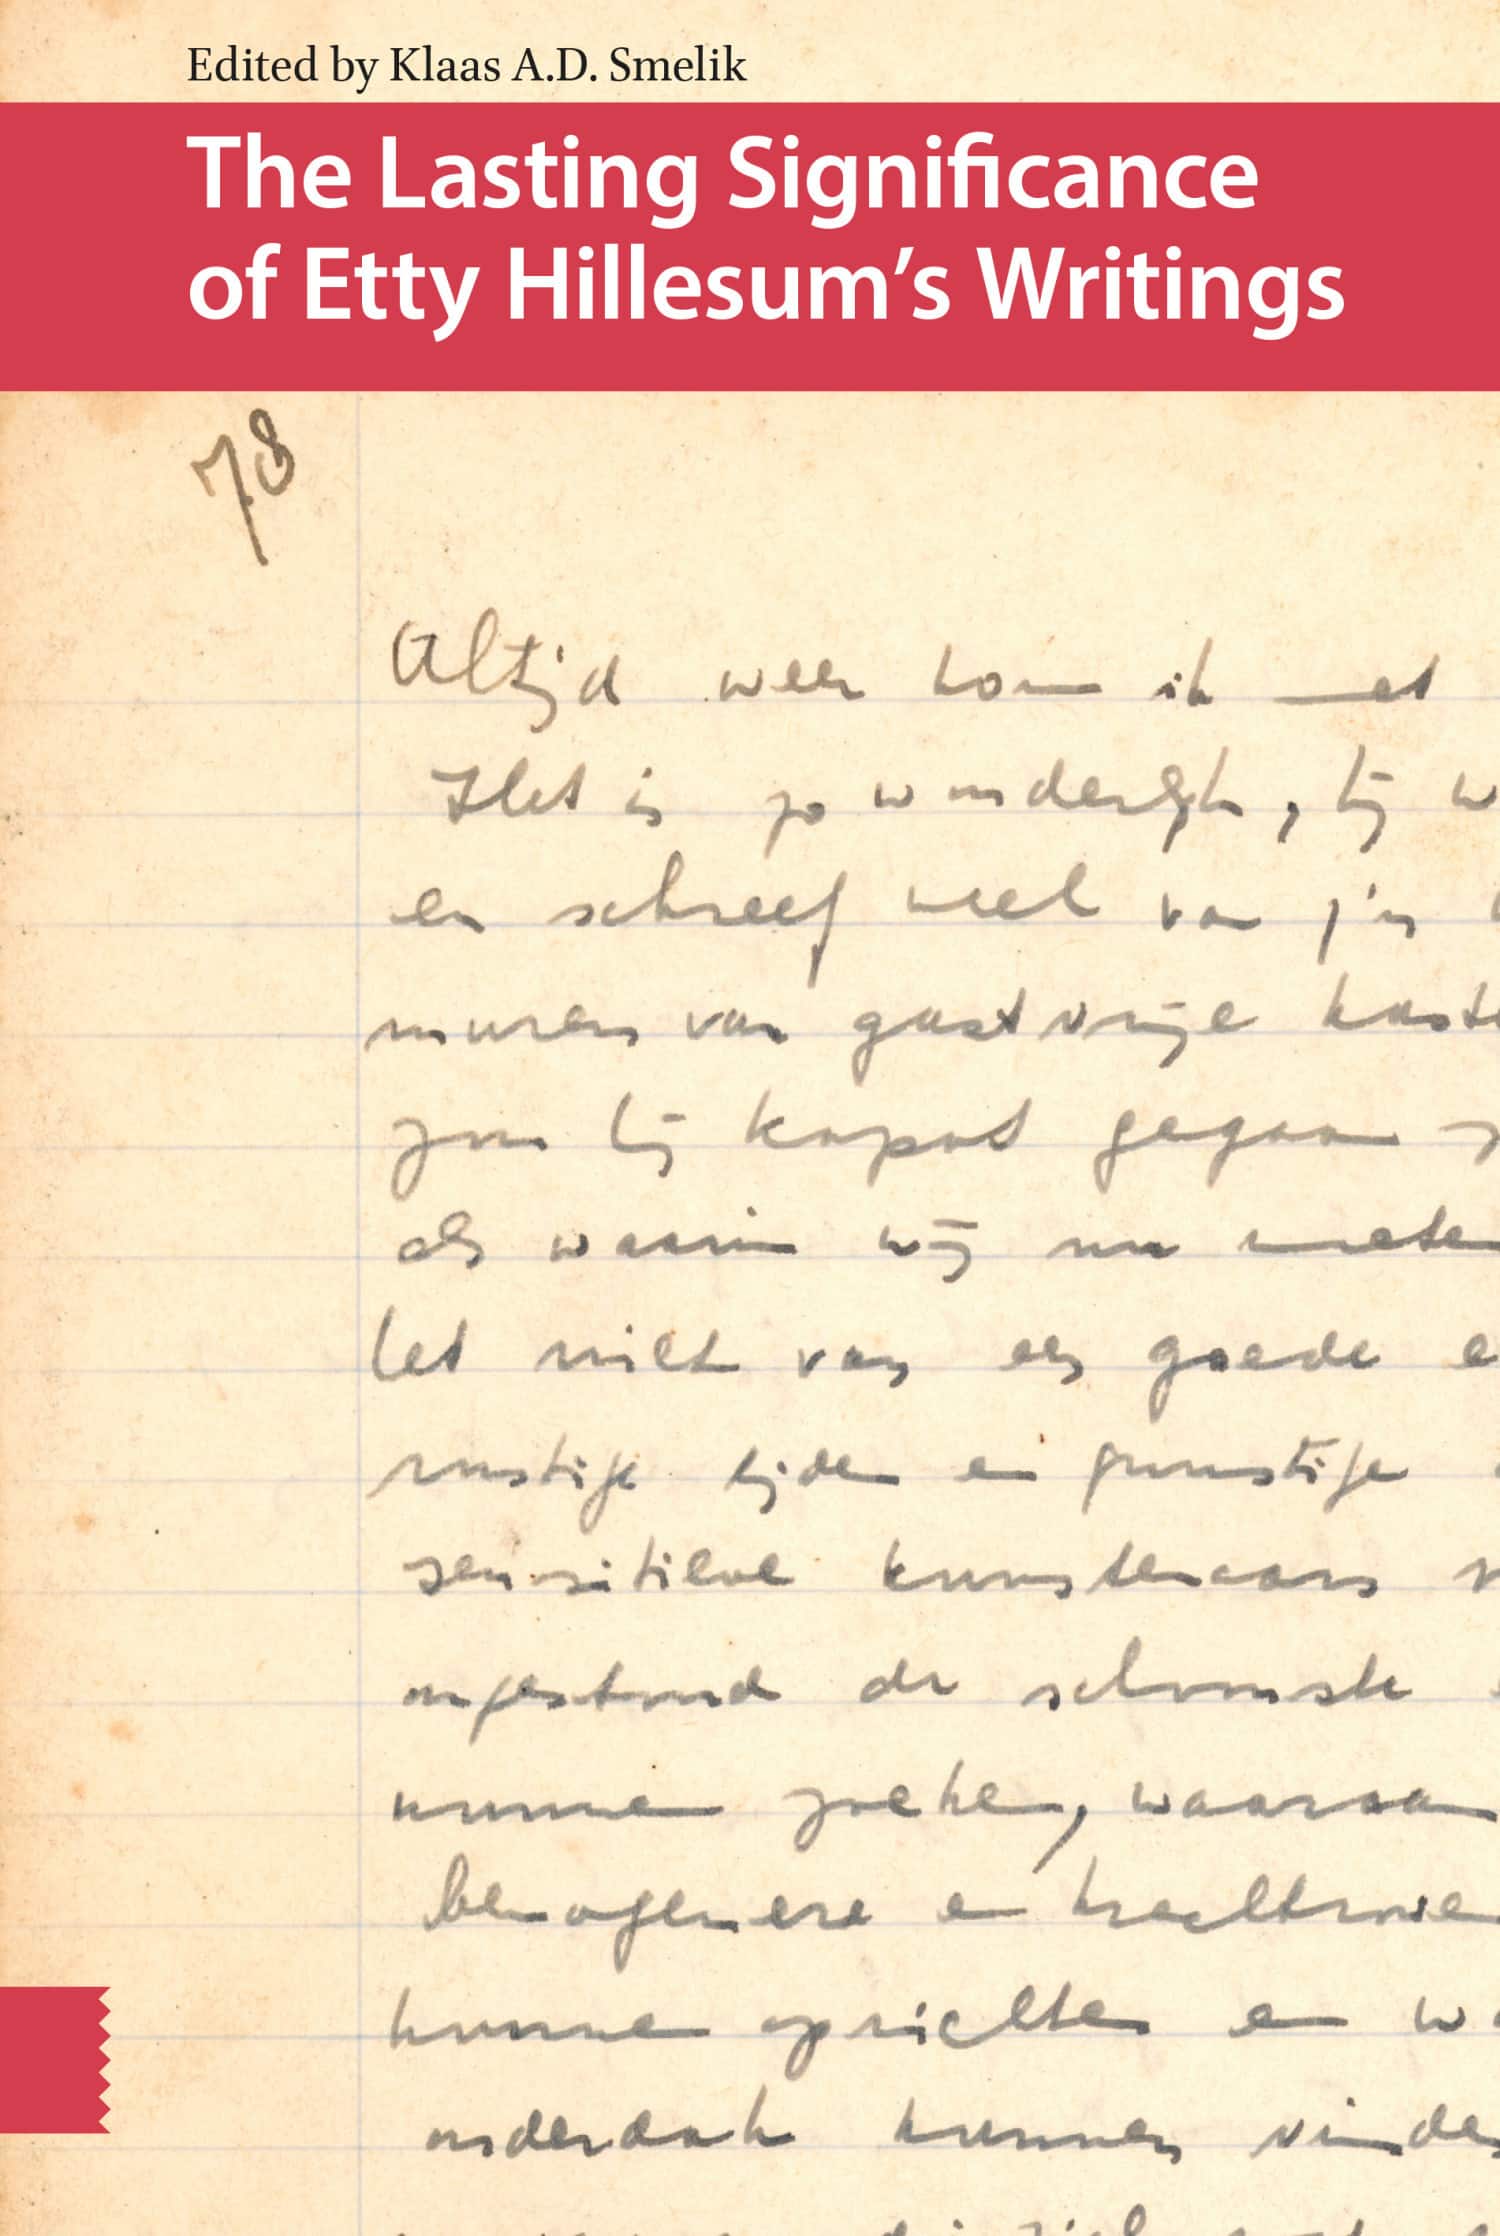 Edited by Klaas A.D. Smelik
The Lasting Significance
of Etty Hillesum's Writings
78
Altijd weer kom ik met
Het is zo wonderlijk, hij w
en schreef veel van z'n
muren van gastvrije kaste
zou hij kapot gegaan z
als waarin wij nu moeten
het niet van een goede e
rustige tijden en gunstige
sensitieve kunstenaars
ongestoord de schoonste
kunnen zoeken, waaraan
bewogener en
kunnen oprichten en wa
onderdak kunnen vinden